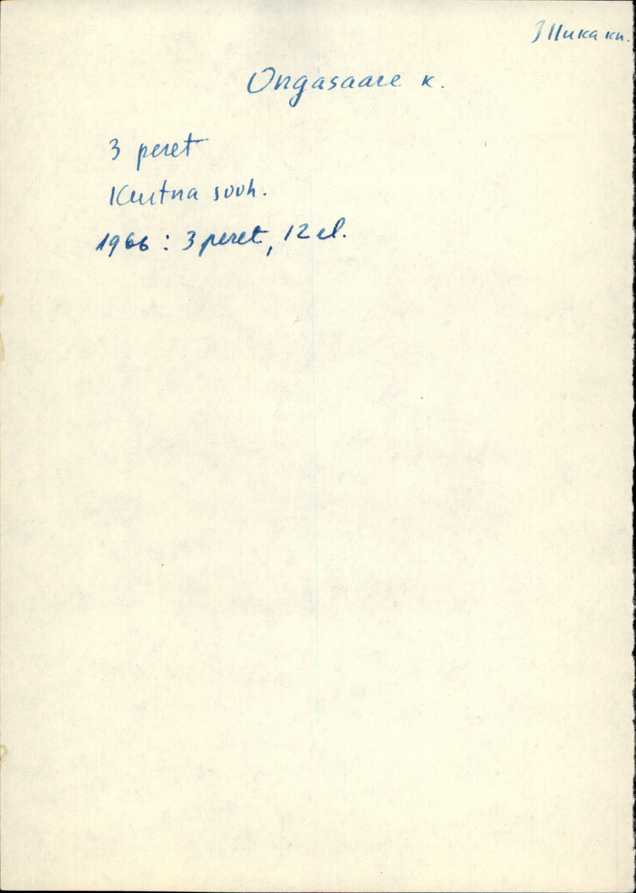 Illuka kn.
Ongasaare k.
3 peret
Kurtna sovh.
1966 : 3 peret, 12 el.